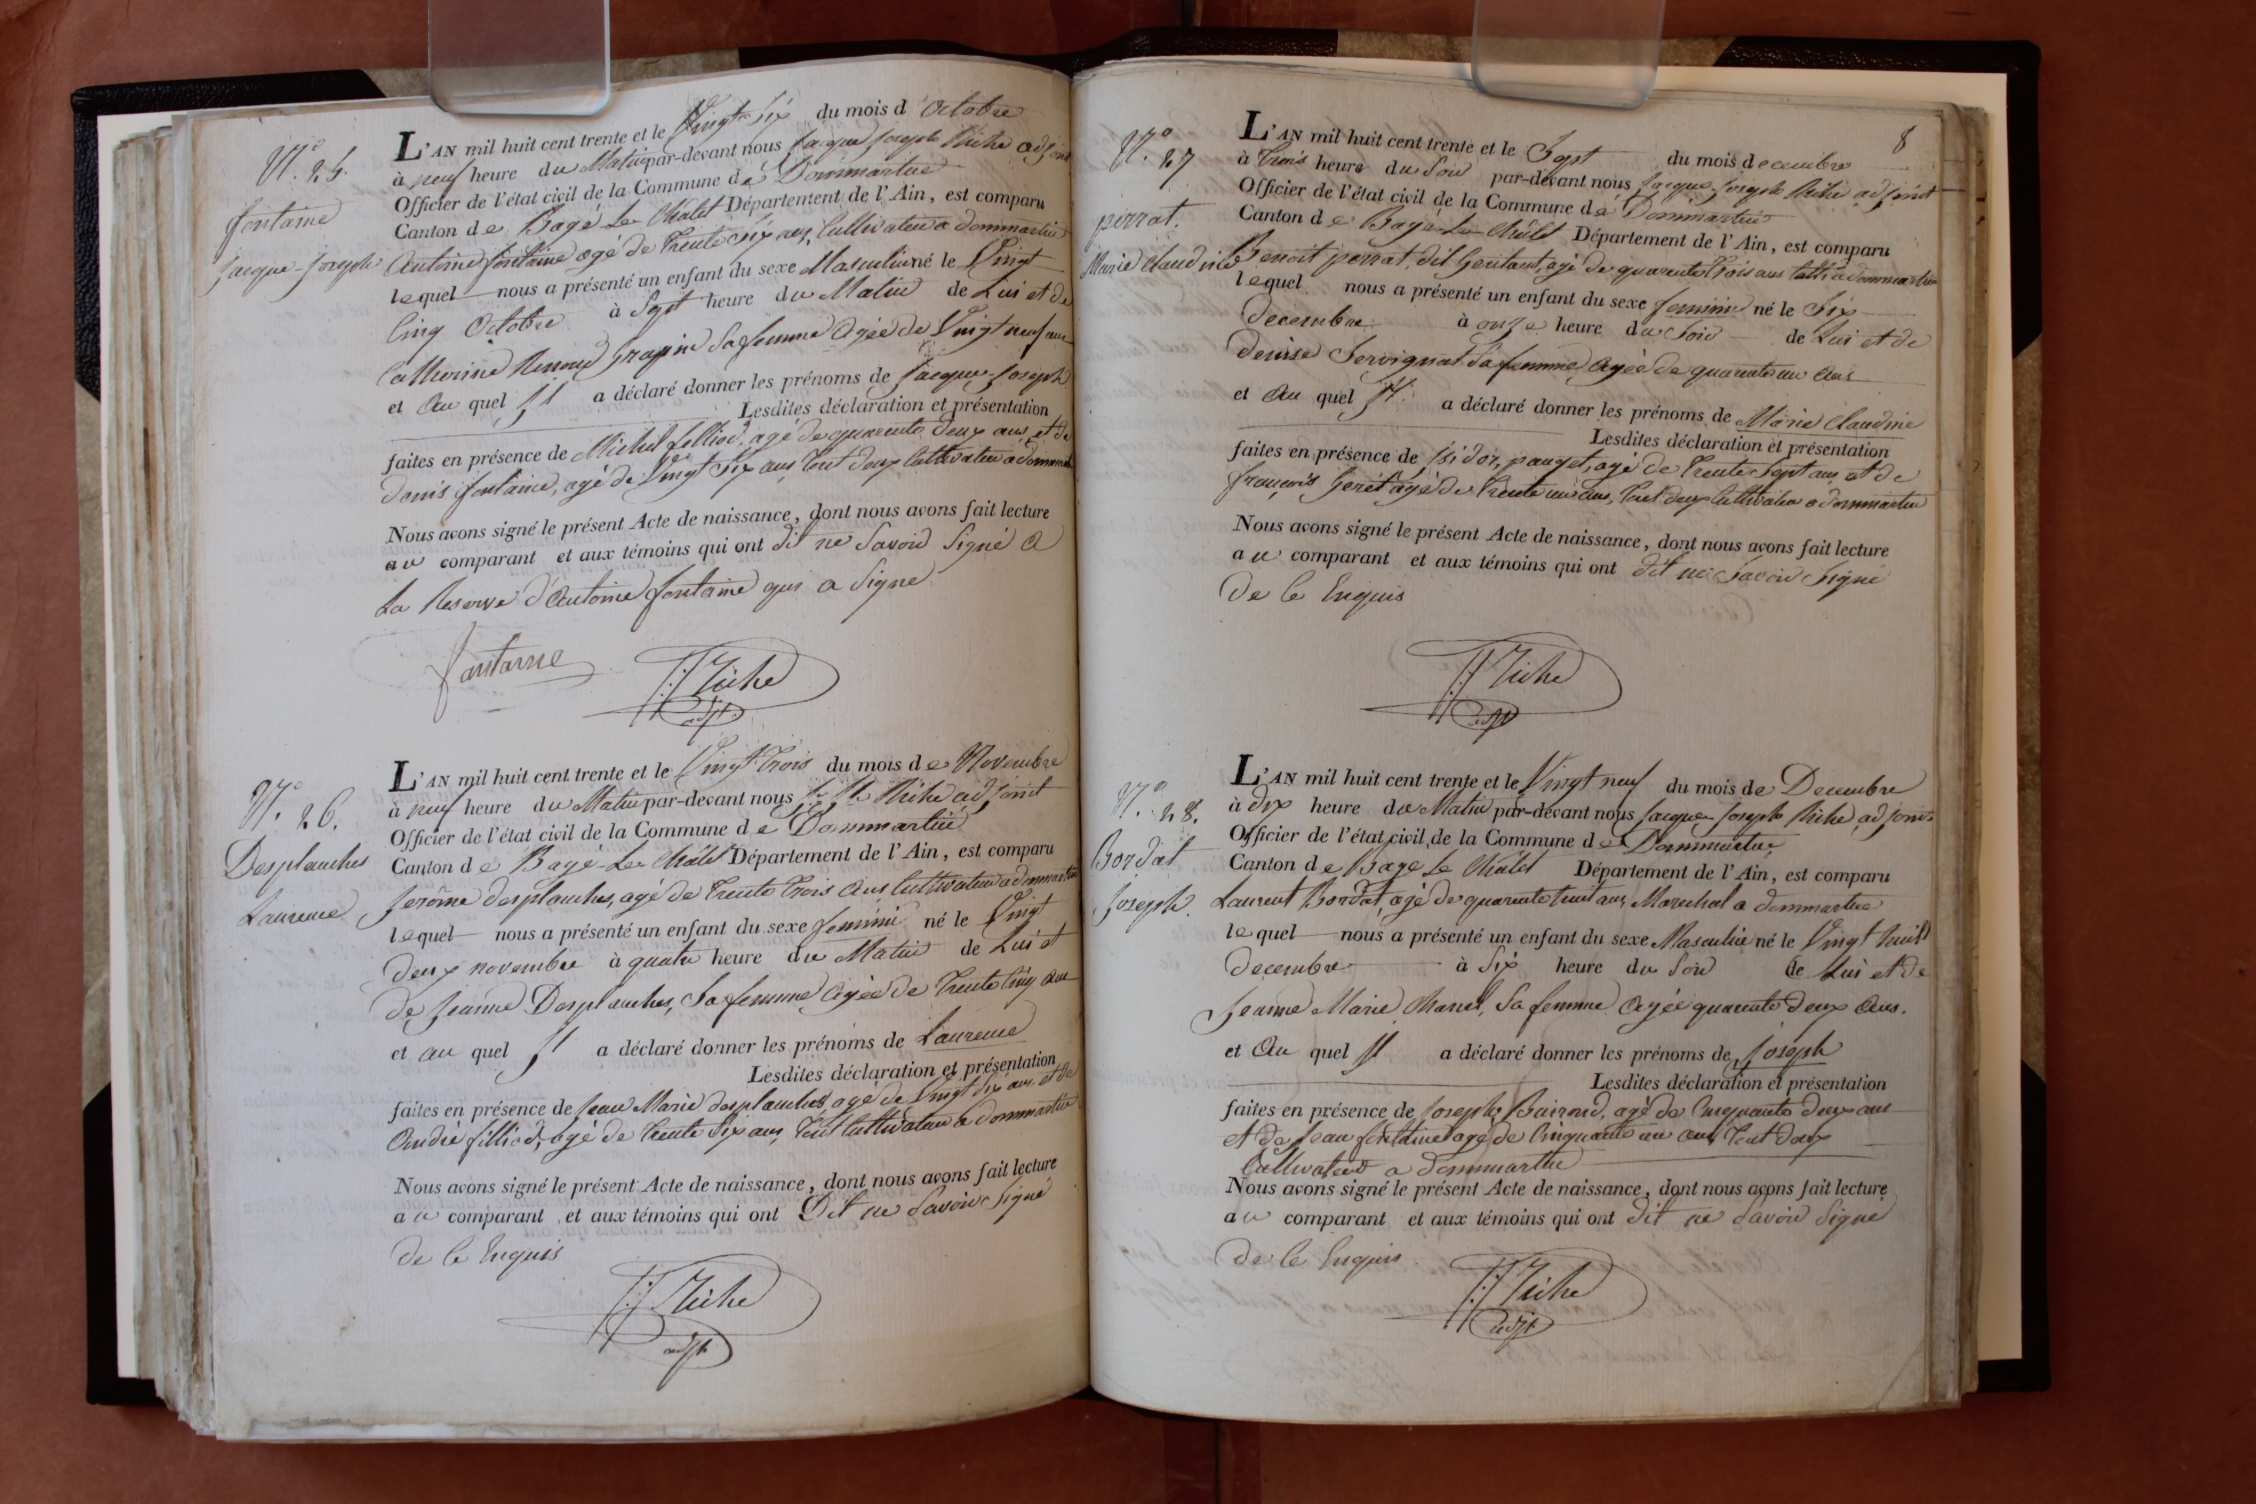 N.° 25.
fontaine
jacque-joseph
L'AN mil huit cent trente et le Vingt Six du mois d'Octobre
à neuf heure du Matin par-devant nous jacque joseph Riche adjoint
Officier de l'état civil de la Commune de Dommartin
Canton de Bagé Le Châtel Département de l'Ain, est comparu
Antoine fontaine agé de trente Six ans, Cultivateur a dommartin
lequel nous a présenté un enfant du sexe Masculin né le Vingt
Cinq Octobre à Sept heure du Matin de Lui et de
Catherine Renoud grapin Sa femme agée de Vingt neuf ans
et Au quel Il a déclaré donner les prénoms de jacque-joseph
Lesdites déclaration et présentation
faites en présence de Michel felliod, agé de quarente deux ans, et de
denis fontaine, agé de Vingt Six ans, tout deux Cultivateur a dommartin
Nous avons signé le présent Acte de naissance, dont nous avons fait lecture
au comparant et aux témoins qui ont dit ne Savoir Signé A
La Reserve d'Antoine fontaine qui a Signé
fontaine J:J Riche
adjt
N.° 26.
Desplanches
Laurence
L'AN mil huit cent trente et le Vingt Trois du mois de Novembre
à neuf heure du Matin par-devant nous Riche adjoint
Officier de l'état civil de la Commune de Dommartin
Canton de Bagé-Le Châtel Département de l'Ain, est comparu
Jerôme desplanches, agé de trente Trois Ans Cultivateur a dommartin
lequel nous a présenté un enfant du sexe feminin né le Vingt
deux novembre à quatre heure du Matin de Lui et
de jeanne Desplanches, Sa femme agée de trente Cinq ans
et au quel Il a déclaré donner les prénoms de Laurence
Lesdites déclaration et présentation
faites en présence de jean Marie desplanches, agé de Vingt Six ans et de
André filliod, agé de trente Six ans, tout Cultivateur a dommartin
Nous avons signé le présent Acte de naissance, dont nous avons fait lecture
au comparant et aux témoins qui ont Dit ne Savoir Signé
de Ce Enquis
J:J Riche
adjt
8
N.° 27
perrat.
Marie Claudine
L'AN mil huit cent trente et le Sept du mois decembre
à trois heure du Soir par-devant nous jacque joseph Riche adjoint
Officier de l'état civil de la Commune de Dommartin
Canton de Bagé-Le Châtel Département de l'Ain, est comparu
Benoit perrat, dit agé de quarente Trois ans Cult. a dommartin
lequel nous a présenté un enfant du sexe feminin né le Six
decembre à onze heure du Soir de Lui et de
denise Servignat Sa femme agée de quarente un ans
et Au quel Il a déclaré donner les prénoms de Marie Claudine
Lesdites déclaration et présentation
faites en présence de isidor, pauget, agé de trente Sept ans et de
françois agé de trente un ans, tout deux Cultivateur a dommartin
Nous avons signé le présent Acte de naissance, dont nous avons fait lecture
au comparant et aux témoins qui ont dit ne Savoir Signé
De Ce Enquis
J:J Riche
adjt
N.° 28.
Bordat
joseph.
L'AN mil huit cent trente et le Vingt neuf du mois de Decembre
à dix heure du Matin par-devant nous jacque joseph Riche adjoint
Officier de l'état civil de la Commune de Dommartin
Canton de Bagé Le Châtel Département de l'Ain, est comparu
Laurent Bordat, agé de quarente huit ans, Marechal a dommartin
lequel nous a présenté un enfant du sexe Masculin né le Vingt huit
decembre à Six heure du Soir de Lui et de
jeanne Marie Manel, Sa femme agée quarente deux Ans.
et Au quel Il a déclaré donner les prénoms de joseph
Lesdites déclaration et présentation
faites en présence de joseph agé de Cinquante deux ans
et de jean fontaine agé de Cinquante un ans, tout deux
Cultivateur a dommartin
Nous avons signé le présent Acte de naissance, dont nous avons fait lecture
au comparant et aux témoins qui ont dit ne Savoir Signé
de Ce Enquis
J:J Riche
adjt